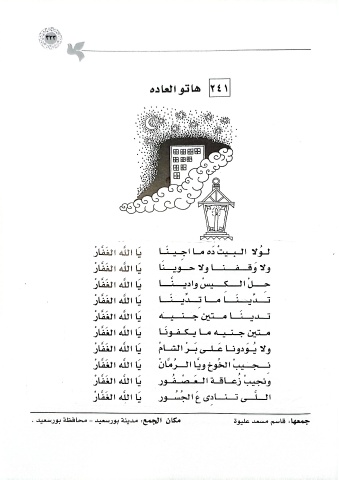 ٣٣٣
٢٤١ هاتو العاده
لولا البيت ده ما اجينا يا الله الغفار
ولا وقفنا ولا حوينا يا الله الغفار
حل الكيس وادينا يا الله الغفار
تدينا ما تدينا يا الله الغفار
تدينا متين جنيه يا الله الغفار
متين جنيه ما يكفونا يا الله الغفار
ولا يودونا على بر الشام يا الله الغفار
نجيب الخوخ ويا الرمان يا الله الغفار
ونجيب زعاقة العصفور يا الله الغفار
اللى تنادى ع الجسور يا الله الغفار
جمعها، قاسم مسعد عليوة مكان الجمع، مدينة بورسعيد - محافظة بورسعيد .